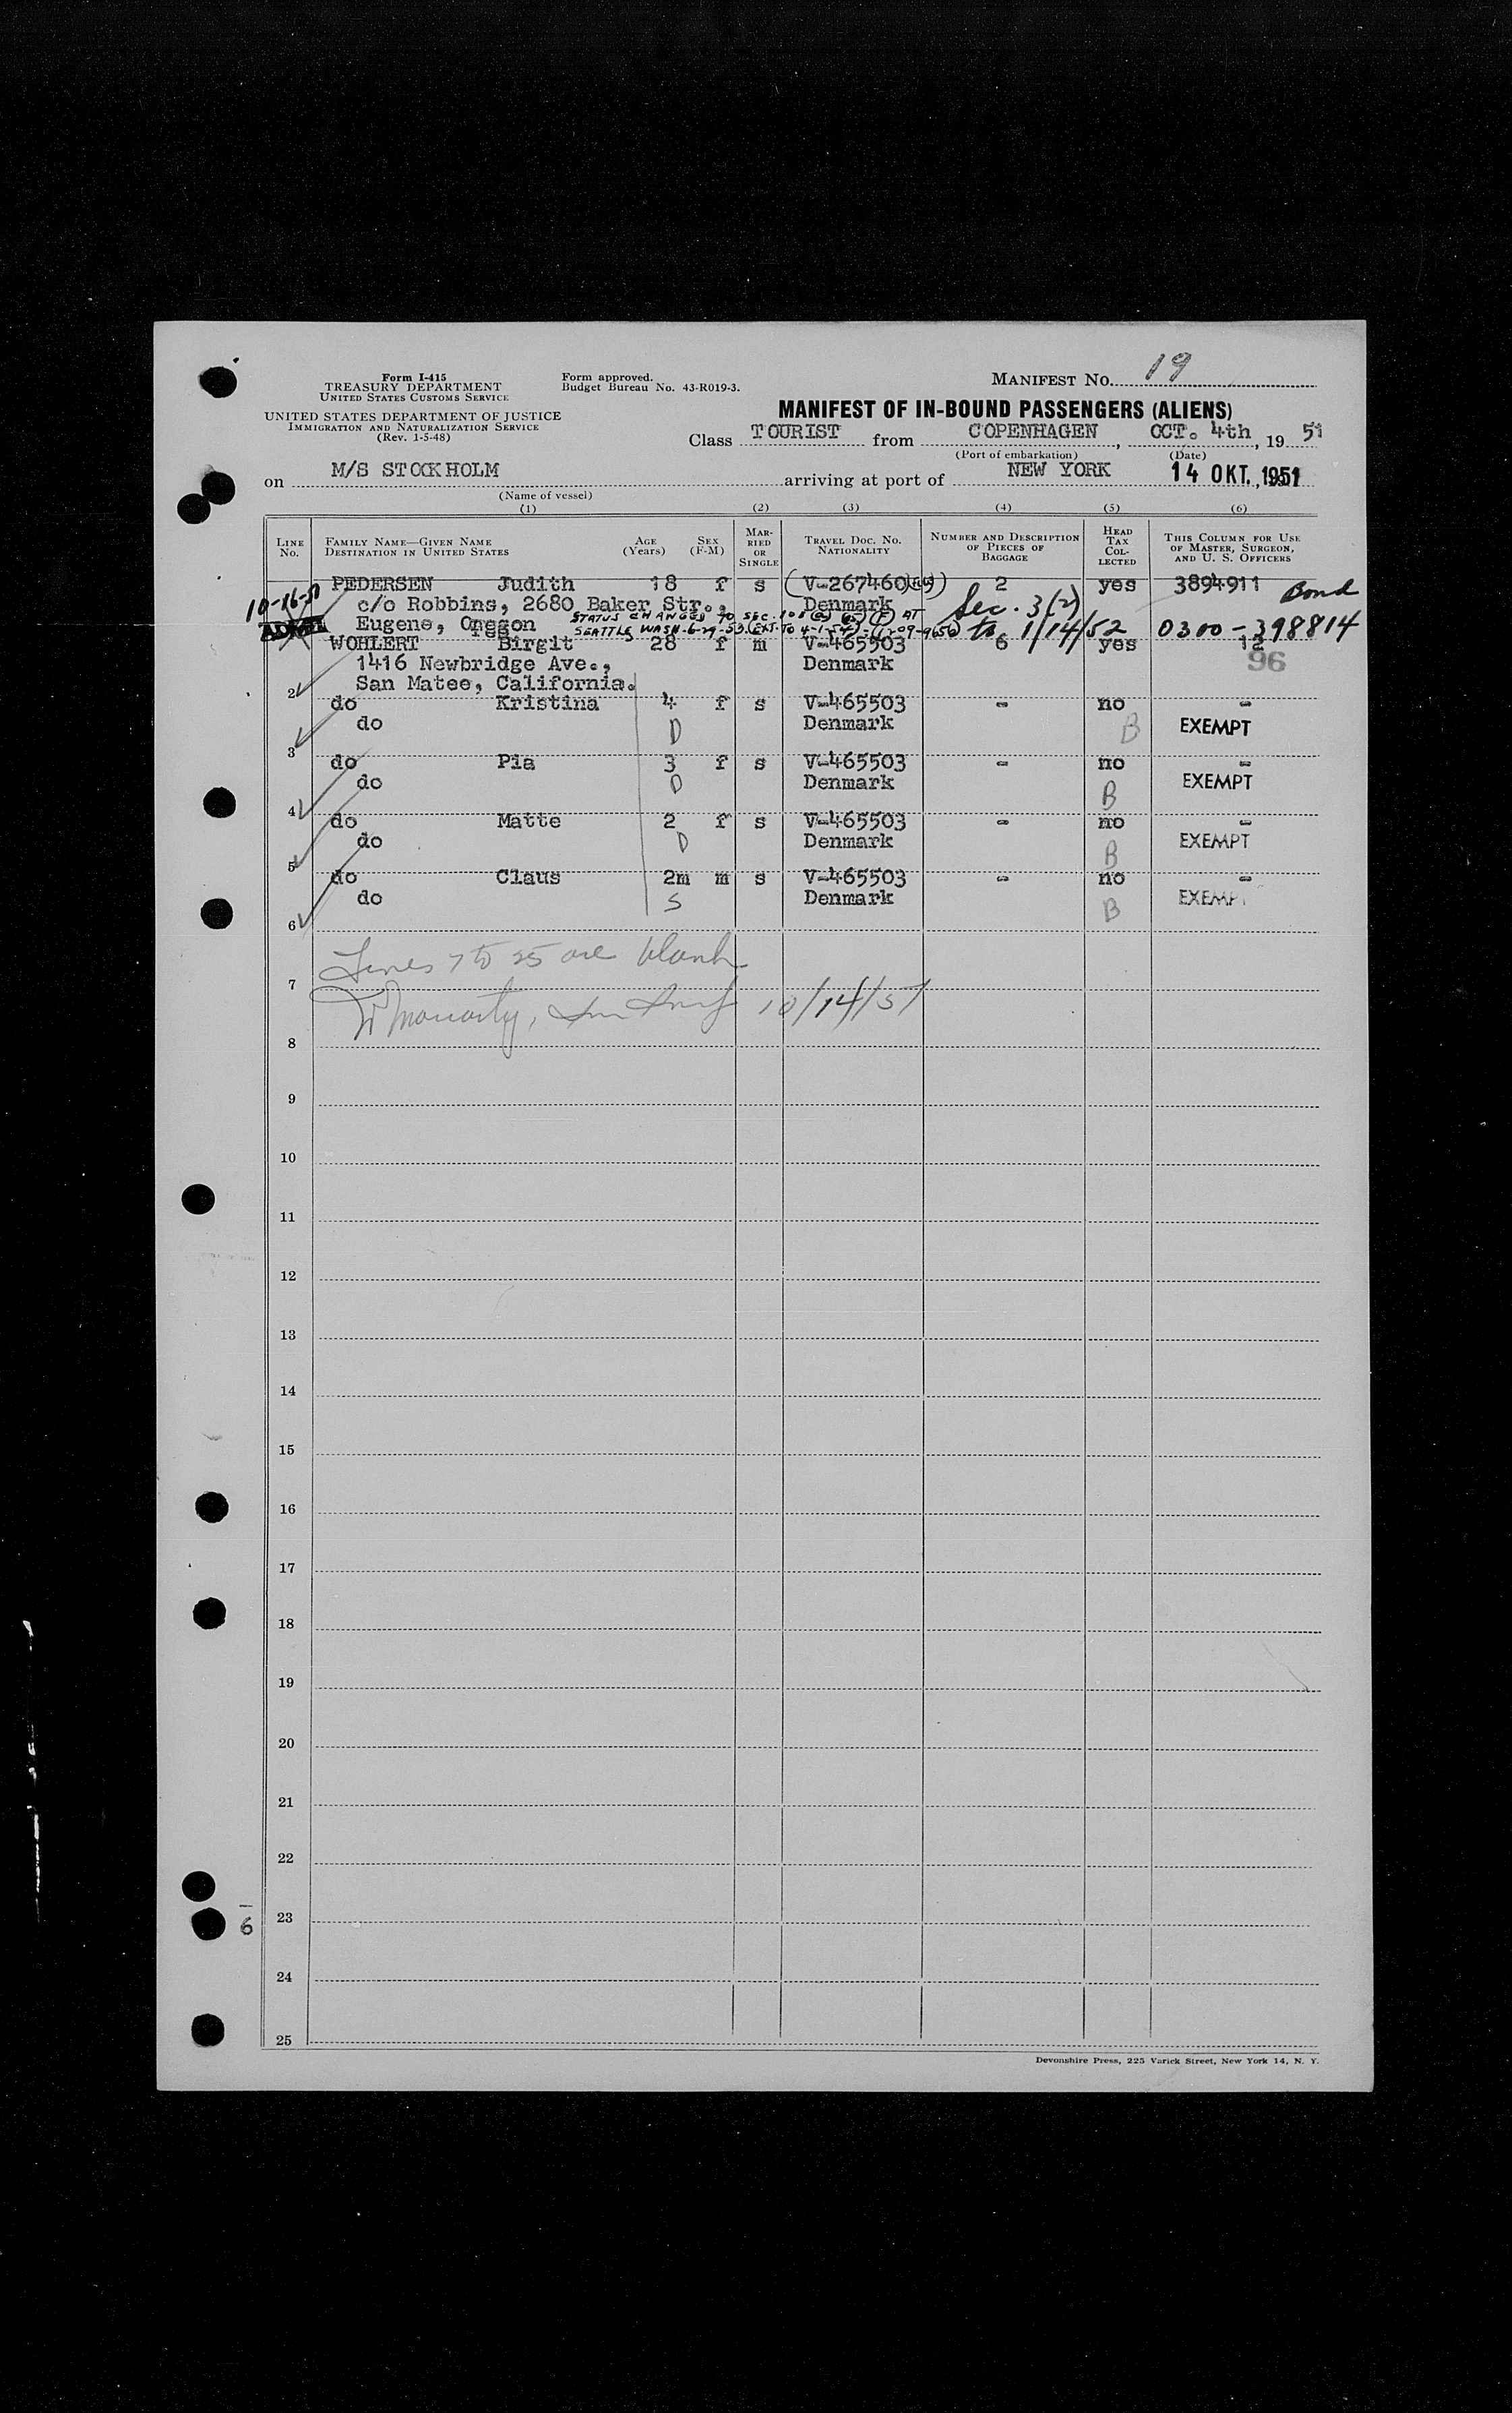 Form I-415
TREASURY DEPARTMENT
UNITED STATES CUSTOMS SERVICE
UNITED STATES DEPARTMENT OF JUSTICE
IMMIGRATION AND NATURALIZATION SERVICE
(Rev. 1-5-48)
Form approved.
Budget Bureau No. 43-R019-3.
MANIFEST NO. 19
MANIFEST OF IN-BOUND PASSENGERS (ALIENS)
Class TOURIST from COPENHAGEN, OCT. 4th, 19 51
(Port of embarkation) (Date)
on M/S STOCKHOLM arriving at port of NEW YORK 14 OKT. 1951
(Name of vessel)
(1) (2) (3) (4) (5) (6)
LINE NO. FAMILY NAME—GIVEN NAME DESTINATION IN UNITED STATES AGE (Years) SEX (F-M) MARRIED OR SINGLE TRAVEL DOC. NO. NATIONALITY NUMBER AND DESCRIPTION OF PIECES OF BAGGAGE HEAD TAX COLLECTED THIS COLUMN FOR USE OF MASTER, SURGEON, AND U. S. OFFICERS
PEDERSEN Judith 18 f s (V-267460) 2 yes 3894911 Bond
10-16-51 c/o Robbins, 2680 Baker Str., Denmark Sec. 3(2)
Eugene, Oregon to 1/14/52 0300-398814
STATUS CHANGED TO SEC. 101 (a) (15) (F) AT
SEATTLE WASH. 6-29-53 (EXT. TO 4-1-54)
WOHLERT Birgit 28 f m V-465503 6 yes 12
1416 Newbridge Ave., Denmark 96
San Mateo, California.
2
do Kristina 4 f s V-465503 - no -
do D Denmark B EXEMPT
3
do Pia 3 f s V-465503 - no -
do D Denmark B EXEMPT
4
do Matte 2 f s V-465503 - no -
do D Denmark B EXEMPT
5
do Claus 2m m s V-465503 - no -
do S Denmark B EXEMP
6
Lines 7 to 25 are blank
7
Moriarty, 10/14/51
8
9
10
11
12
13
14
15
16
17
18
19
20
21
22
6 23
24
25
Devonshire Press, 225 Varick Street, New York 14, N. Y.